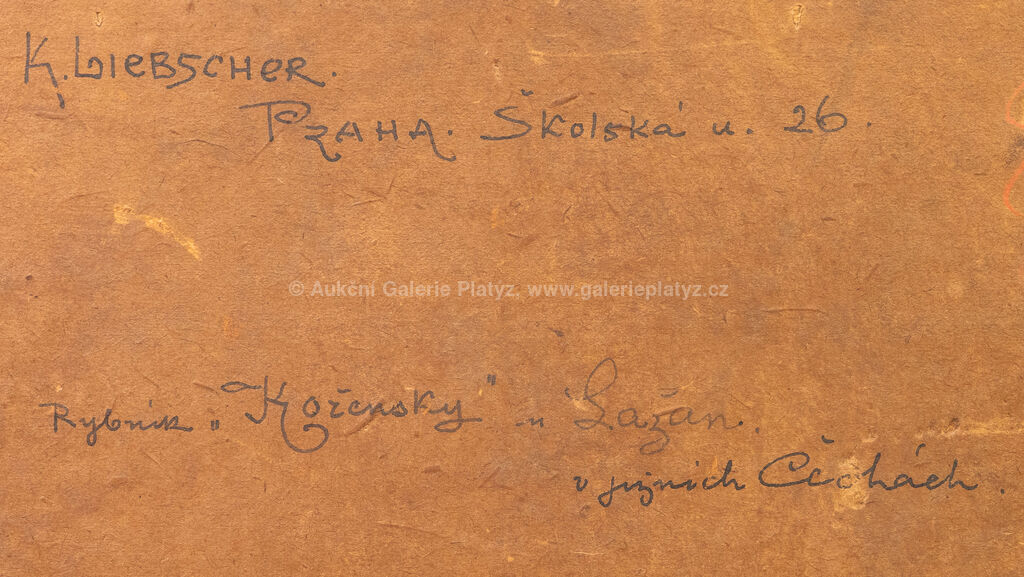 K. LIEBSCHER.
PRAHA. Školská u. 26.
© Aukční Galerie Platyz, www.galerieplatyz.cz
Rybnik „Kořensky" u Lažan.
v jižnich Čechách.